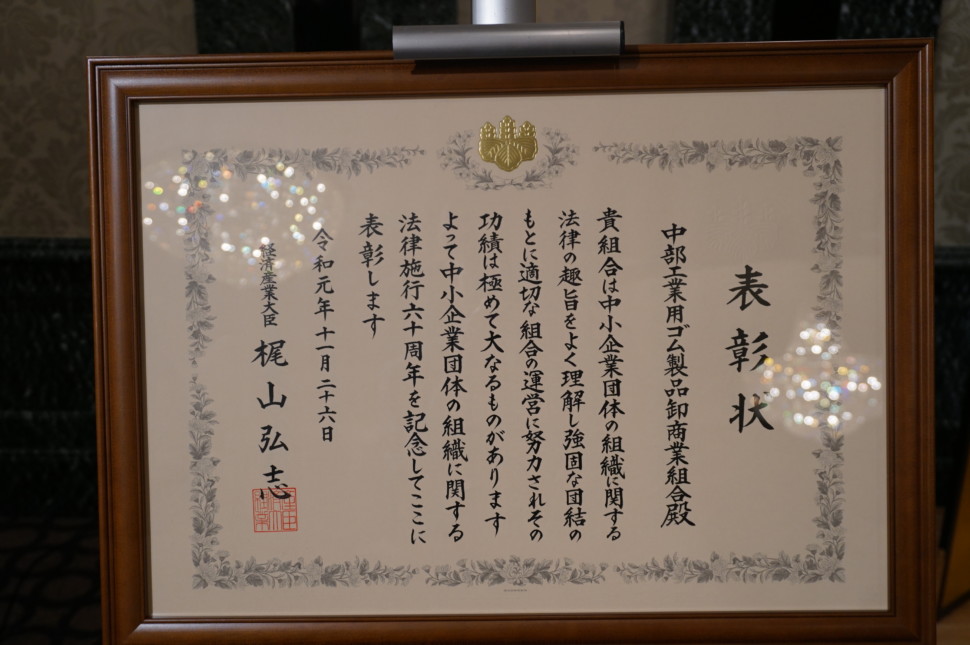 表彰状
中部工業用ゴム製品卸商業組合殿
貴組合は中小企業団体の組織に関する
法律の趣旨をよく理解し強固な団結の
もとに適切な組合の運営に努力されその
功績は極めて大なるものがあります
よって中小企業団体の組織に関する
法律施行六十周年を記念してここに
表彰します
令和元年十一月二十六日
経済産業大臣 梶山弘志